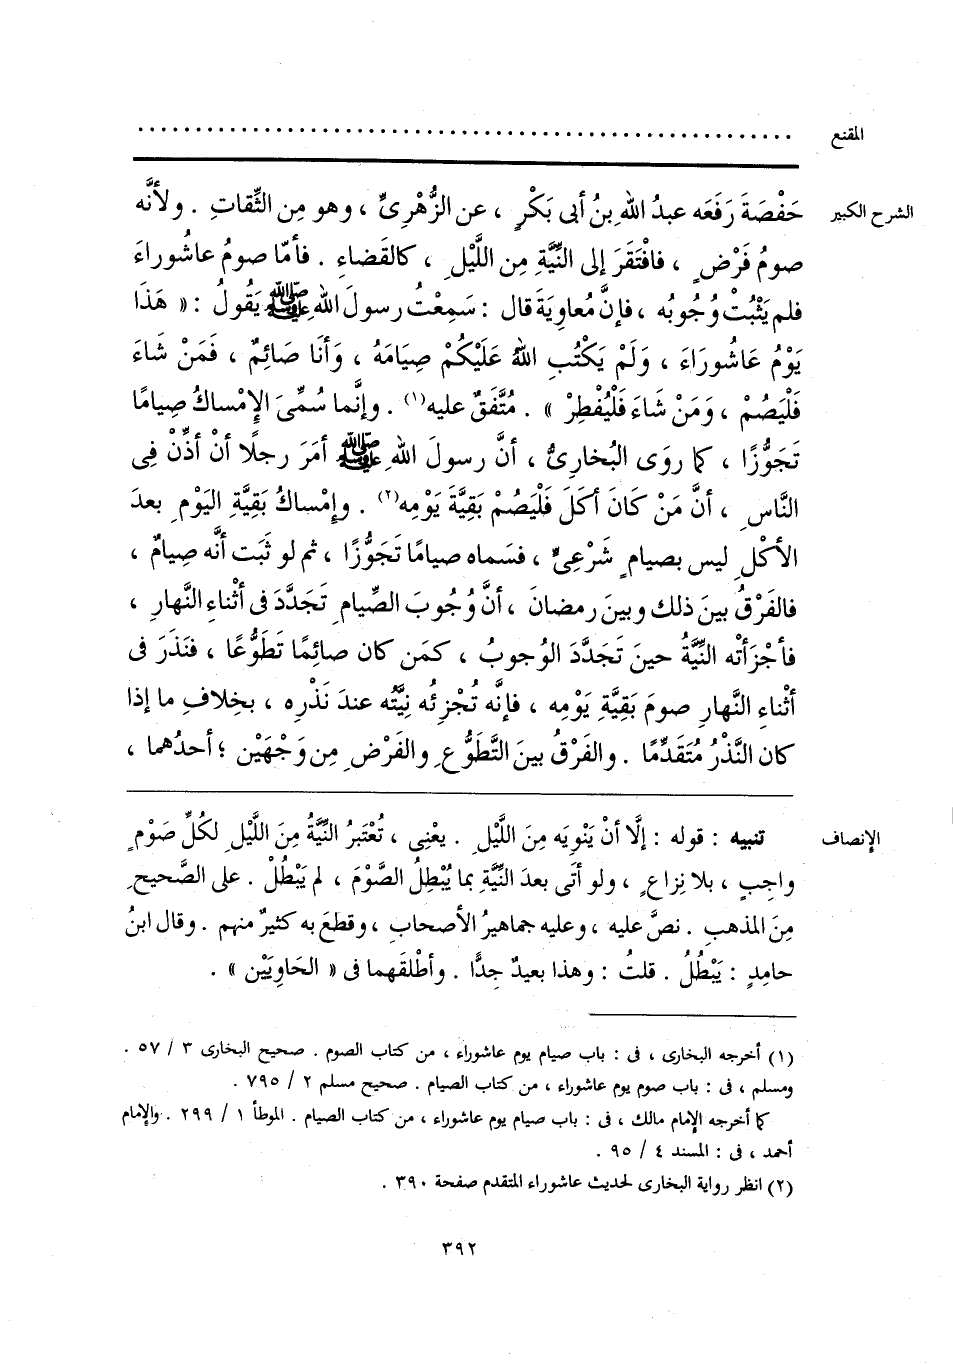 المقنع ........................................................
الشرح الكبير حَفْصَةَ رَفَعَه عبدُ اللهِ بنُ أبى بَكْرٍ ، عن الزُّهْرِىِّ ، وهو مِن الثِّقاتِ . ولأنَّه
صومُ فَرْضٍ ، فافْتَقَرَ إلى النِّيَّةِ مِن اللَّيْلِ ، كالقَضاءِ . فأمّا صومُ عاشُوراءَ
فلم يَثْبُتْ وُجُوبُه ، فإنَّ مُعاوِيَةَ قال : سَمِعْتُ رسولَ اللهِ ﷺ يَقُولُ : « هَذَا
يَوْمُ عَاشُورَاءَ ، وَلَمْ يَكْتُبِ اللهُ عَلَيْكُمْ صِيَامَهُ ، وَأَنَا صَائِمٌ ، فَمَنْ شَاءَ
فَلْيَصُمْ ، وَمَنْ شَاءَ فَلْيُفْطِرْ » . مُتَّفَقٌ عليه(١) . وإنَّما سُمِّىَ الإِمْساكُ صِيامًا
تَجَوُّزًا ، كما روَى البُخارِىُّ ، أنَّ رسولَ اللهِ ﷺ أمَرَ رجلًا أنْ أذِّنْ فِى
النَّاسِ ، أنَّ مَنْ كَانَ أكَلَ فَلْيَصُمْ بَقِيَّةَ يَوْمِه(٢) . وإمْساكُ بَقِيَّةِ اليَوْمِ بعدَ
الأكْلِ ليس بصيامٍ شَرْعِىٍّ ، فسَماه صيامًا تَجَوُّزًا ، ثم لو ثَبَت أنَّه صِيامٌ ،
فالفَرْقُ بينَ ذلك وبينَ رمضانَ ، أنَّ وُجُوبَ الصِّيامِ تَجَدَّدَ فى أثْناءِ النَّهارِ ،
فأجْزَأتْه النِّيَّةُ حينَ تَجَدَّدَ الوُجوبُ ، كمَن كان صائِمًا تَطَوُّعًا ، فنَذَرَ فى
أثْناءِ النَّهارِ صومَ بَقِيَّةِ يَوْمِه ، فإنَّه تُجْزِئُه نِيَّتُه عندَ نَذْرِه ، بخِلافِ ما إذا
كان النَّذْرُ مُتَقَدِّمًا . والفَرْقُ بينَ التَّطَوُّعِ والفَرْضِ مِن وَجْهَيْن ؛ أحدُهما ،
الإنصاف تنبيه : قوله : إلَّا أنْ يَنْوِيَه مِنَ اللَّيْلِ . يعْنِى ، تُعْتَبرُ النِّيَّةُ مِنَ اللَّيْلِ لكُلِّ صَوْمٍ
واجِبٍ ، بلا نِزاعٍ ، ولو أتَى بعدَ النِّيَّةِ بما يُبْطِلُ الصَّوْمَ ، لم يَبْطُلْ . على الصَّحيحِ
مِنَ المذهبِ . نصَّ عليه ، وعليه جماهيرُ الأصحابِ ، وقطَعَ به كثيرٌ منهم . وقال ابنُ
حامِدٍ : يَبْطُلُ . قلتُ : وهذا بعيدٌ جِدًّا . وأطْلَقَهما فى « الحَاوِيَيْن » .
(١) أخرجه البخارى ، فى : باب صيام يوم عاشوراء ، من كتاب الصوم . صحيح البخارى ٣ / ٥٧ .
ومسلم ، فى : باب صوم يوم عاشوراء ، من كتاب الصيام . صحيح مسلم ٢ / ٧٩٥ .
كما أخرجه الإمام مالك ، فى : باب صيام يوم عاشوراء ، من كتاب الصيام . الموطأ ١ / ٢٩٩ . والإمام
أحمد ، فى : المسند ٤ / ٩٥ .
(٢) انظر رواية البخارى لحديث عاشوراء المتقدم صفحة ٣٩٠ .
٣٩٢